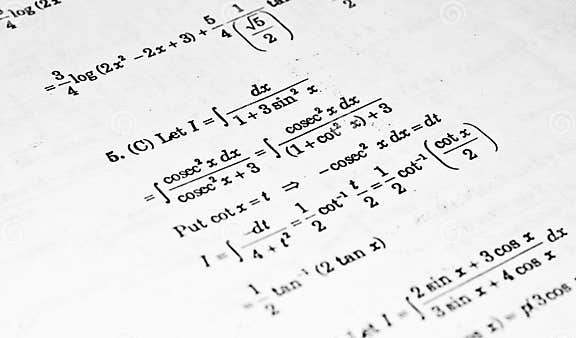 4 log (2x
= 3/4 log (2x² − 2x + 3) + 5/4 1/(√5/2)
2
5. (C) Let I = ∫ dx / 1 + 3 sin² x
= ∫ cosec² x dx / cosec² x + 3 = ∫ cosec² x dx / (1 + cot² x) + 3
Put cot x = t ⇒ −cosec² x dx = dt
I = ∫ −dt / 4 + t² = 1/2 cot⁻¹ t/2 = 1/2 cot⁻¹ (cot x / 2)
= 1/2 tan⁻¹ (2 tan x)
I = ∫ 2 sin x + 3 cos x / 3 sin x + 4 cos x dx
x) = p(3 cos